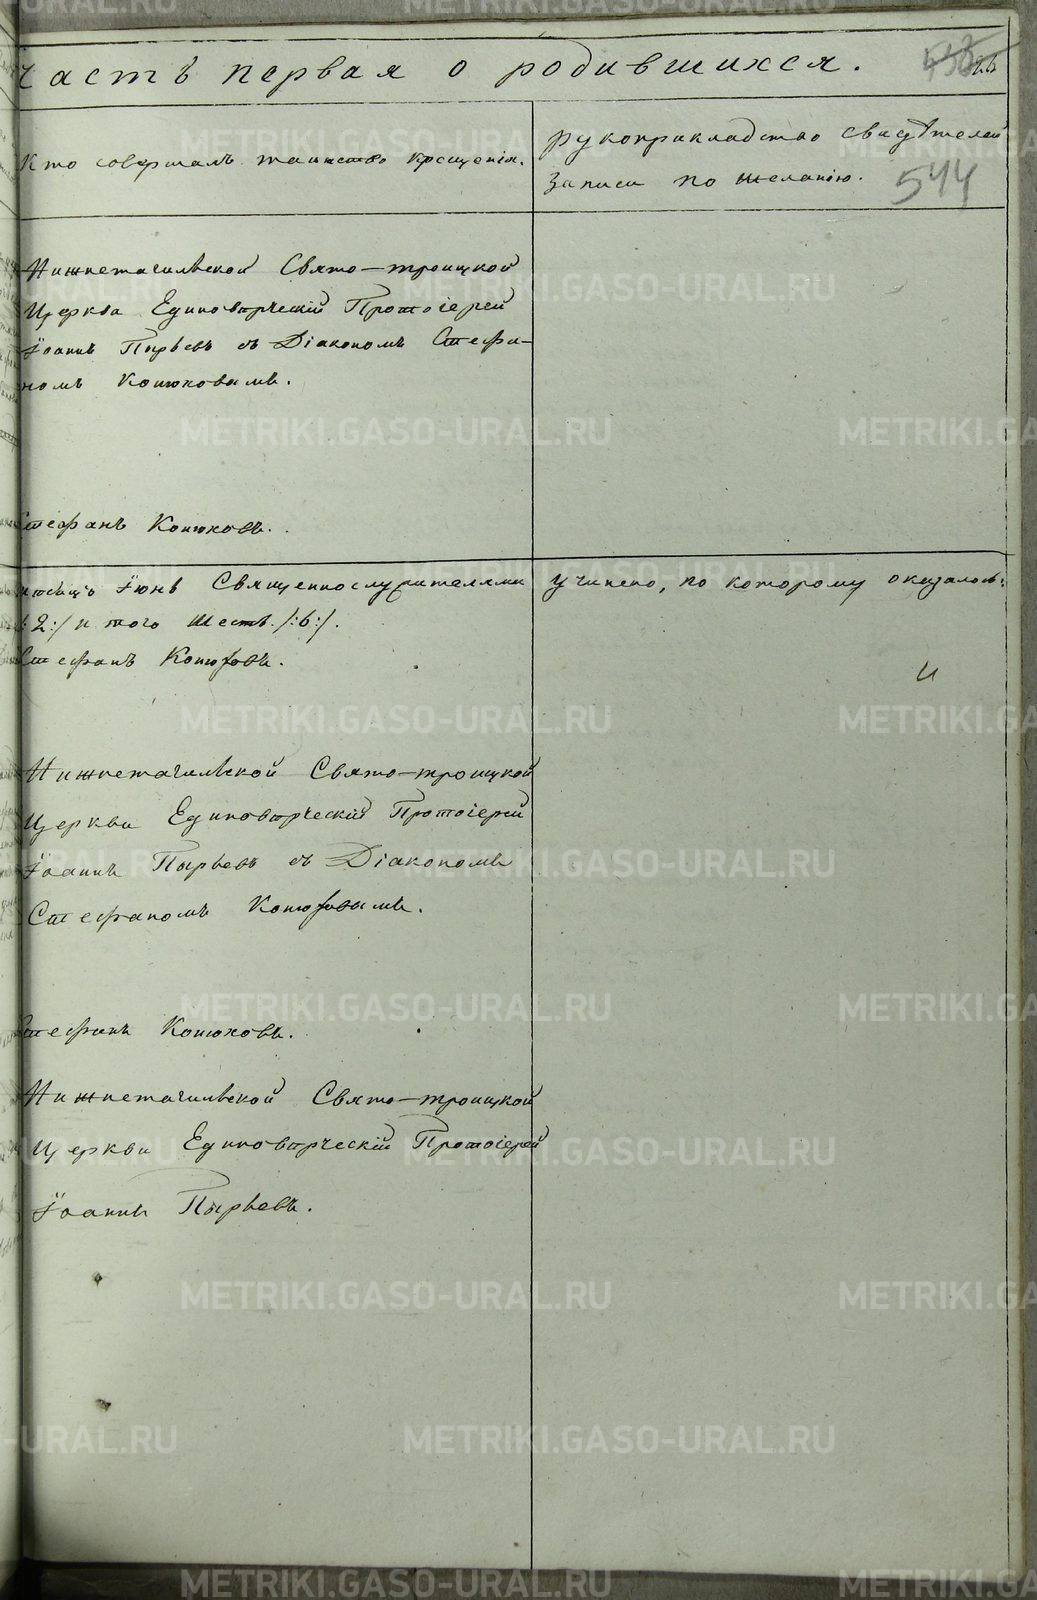 часть первая о родившихся.
544
Кто совершалъ таинство крещенія.
рукоприкладство свидѣтелей
записи по желанію.
Нижнетагильской Свято-троицкой
Церкви Единовѣрческій Протоіерей
Іоаннъ Пырьевъ съ Діакономъ Стефа-
номъ Конюховымъ.
Стефанъ Конюховъ.
Іюнѣ Священнослужителями учинено, по которому оказалось:
:2:/ итого шесть /:6:/.
Стефанъ Конюховъ.
и
Нижнетагильской Свято-троицкой
Церкви Единовѣрческій Протоіерей
Іоаннъ Пырьевъ съ Діакономъ
Стефаномъ Конюховымъ.
Стефанъ Конюховъ.
Нижнетагильской Свято-троицкой
Церкви Единовѣрческій Протоіерей
Іоаннъ Пырьевъ.
METRIKI.GASO-URAL.RU